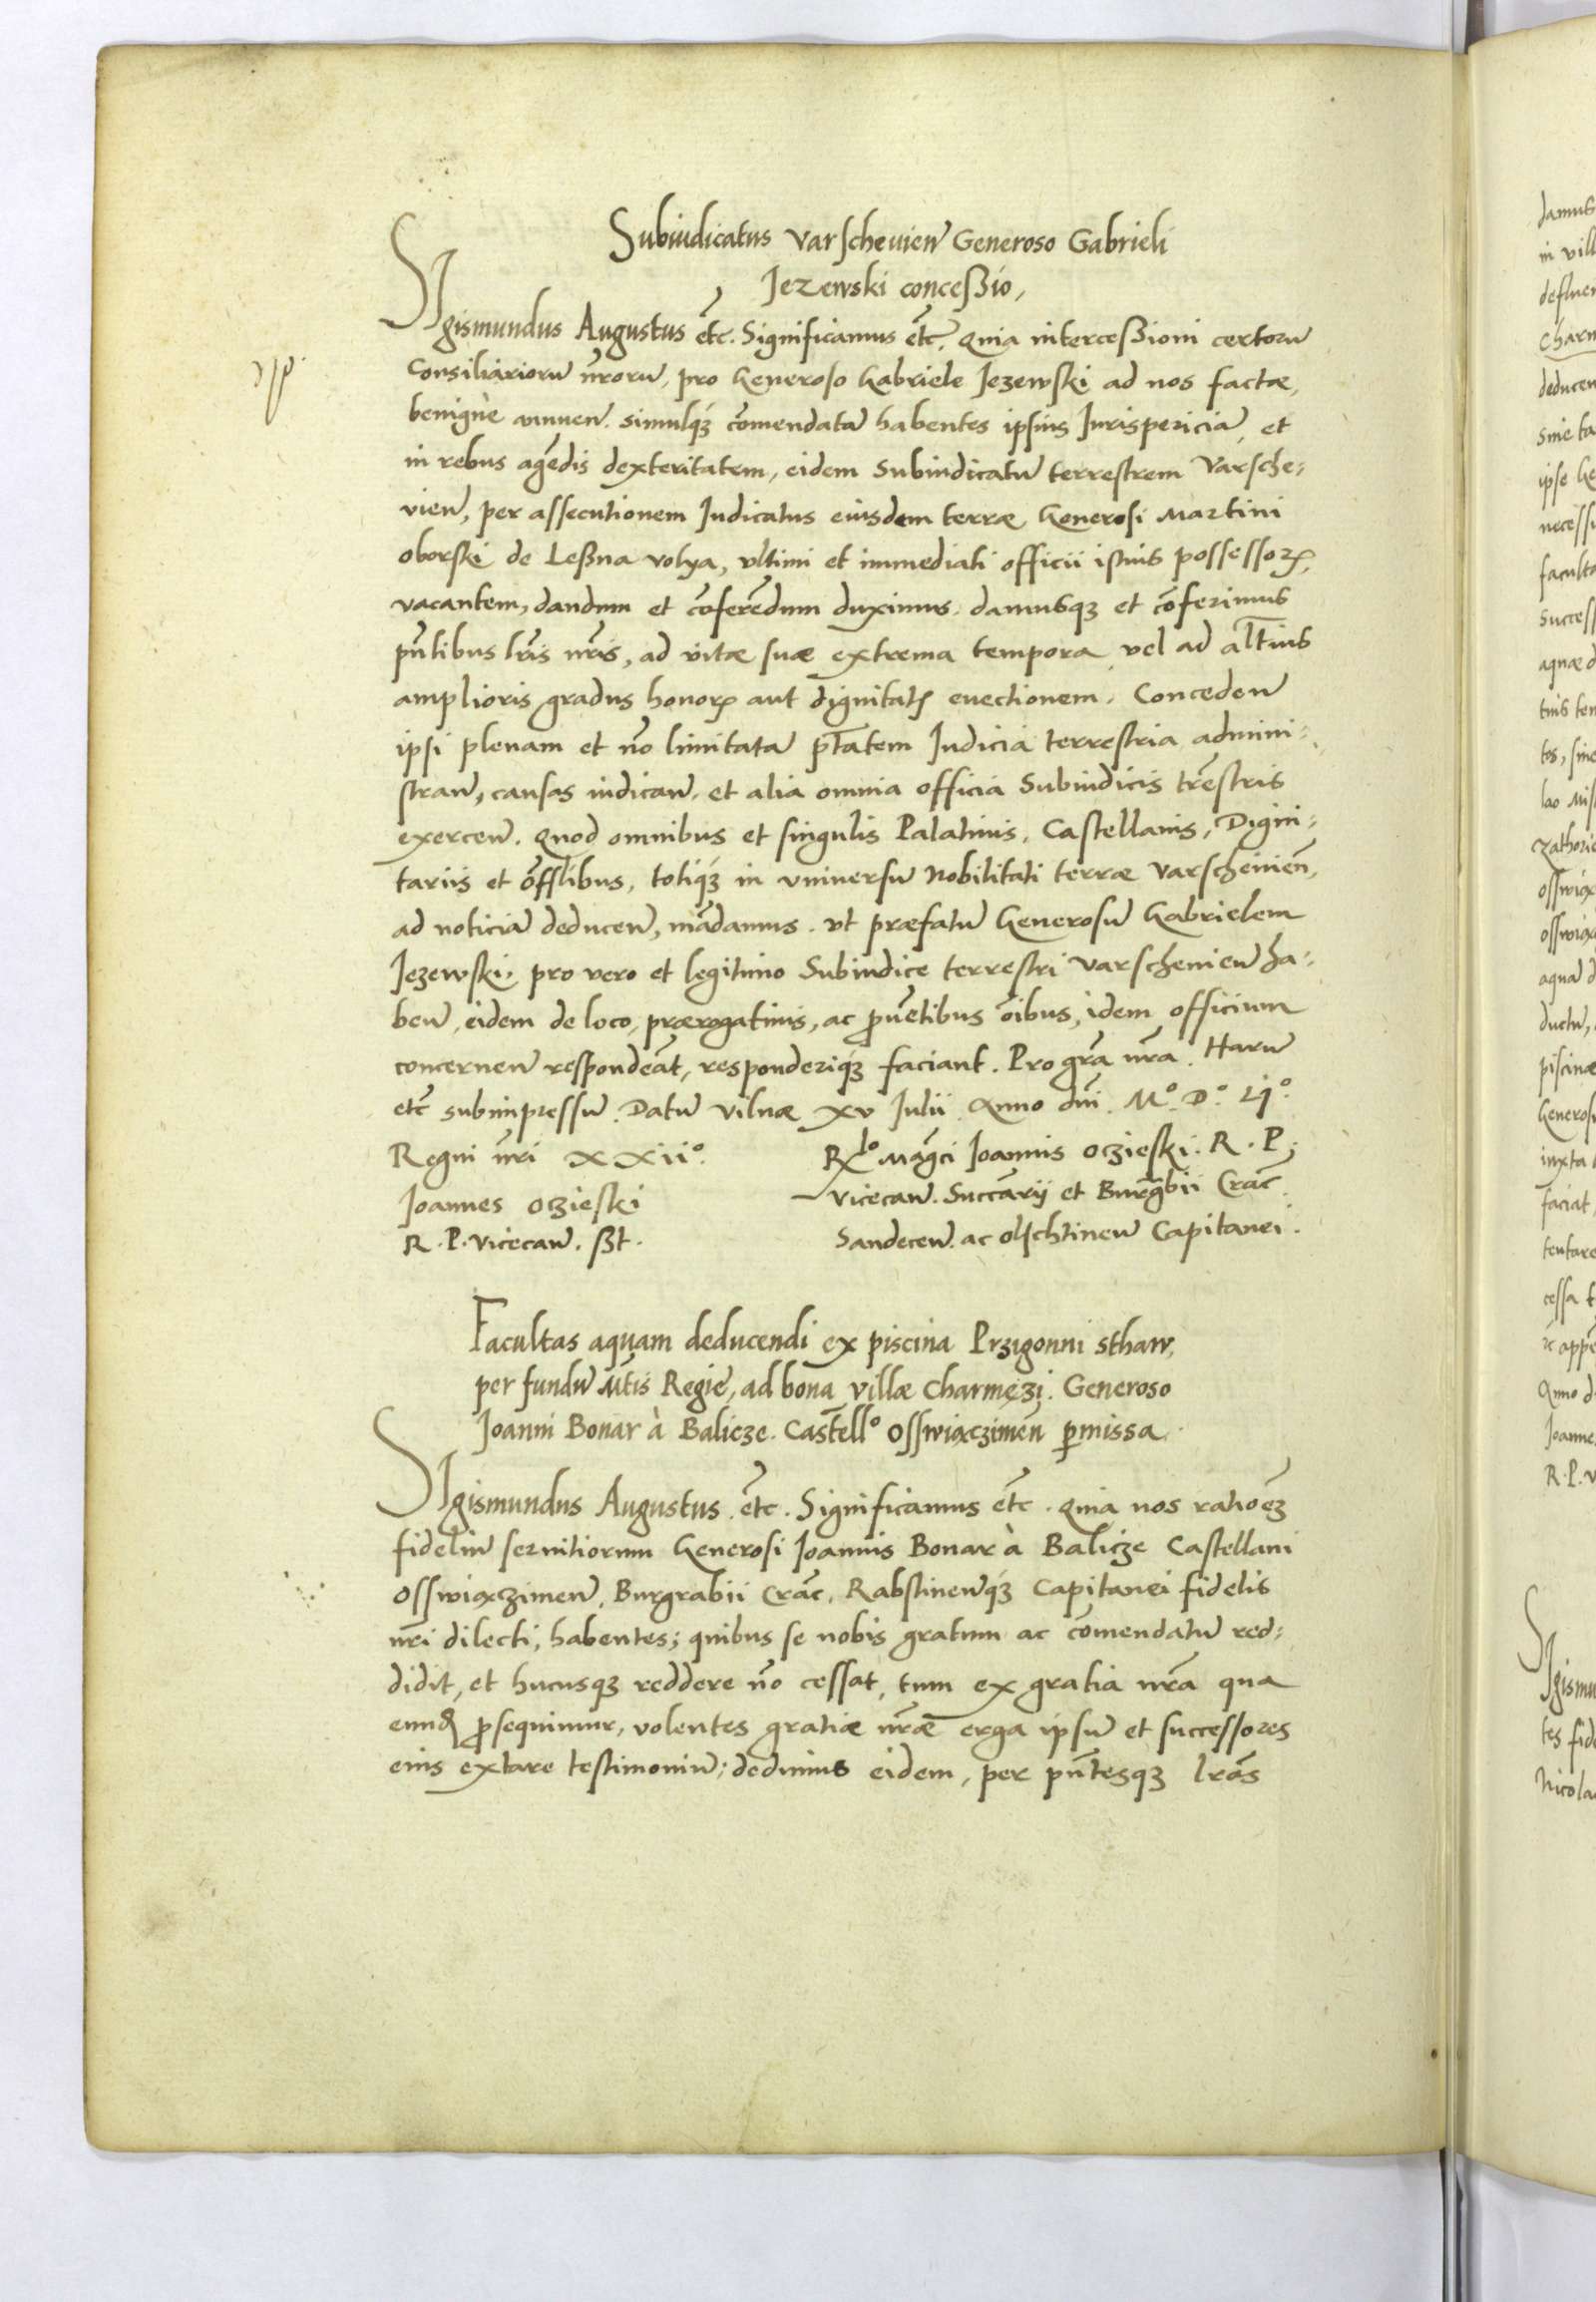 Subiudicatus Varscheuien Generoso Gabrieli
Jezewski conceßio,
SIgismundus Augustus etc. Significamus etc. Quia interceßioni certoru
Consiliarioru nroru, pro Generoso Gabriele Jezewski ad nos factæ,
benignè annuen. simulq; comendata habentes ipsius Jurispericia, et
in rebus agēdis dexteritatem, eidem Subiudicatu terrestrem Varsche-
uien, per assecutionem Judicatus eiusdem terræ Generosi Martini
oborski de Leßna volya, vltimi et immediati officii istius possessor,
vacantem, dandum et cōferēdum duximus. damusq; et cōferimus
pntibus lris nris, ad vitæ suæ extrema tempora vel ad altius
amplioris gradus honor aut dignitat euectionem. Conceden
ipsi plenam et nō limitata ptatem Judicia terrestria admini-
stran, causas iudican. et alia omnia officia Subiudicis trestris
exercen. Quod omnibus et singulis Palatinis, Castellanis, Digni-
tariis et offlibus, totiq; in vniuersu Nobilitati terræ Varscheuien,
ad noticia deducen, mādamus. vt præfatu Generosu Gabrielem
Jezewski, pro vero et legitimo Subiudice terrestri Varscheuien ha-
ben, eidem de loco, prærogatiuis, ac prouētibus oibus, idem officium
concernen respondeāt, responderiq; faciant. Pro gra nra. Haru
etc subimpressu. Datu Vilnæ xv Julii Anno dni. Mº. Dº. LIº.
Regni nri XXIIº.
Joannes Oczieski
R. P. Vicecan. sßt.
Rlo Magci Joannis Oczieski. R. P.
Vicecan. Succarij et Burgbii Crac
Sandecen. ac olschtinen Capitanei.
Facultas aquam deducendi ex piscina Przigonni sthaw,
per fundu Mtis Regie, ad bona villæ Charmęzi. Generoso
Joanni Bonar à Balicze. Castello Osswiæczimen pmissa.
SIgismundus Augustus. etc. Significamus etc. Quia nos ratioēz
fideliu seruitiorum Generosi Joannis Bonar à Balicze Castellani
Osswiæczimen, Burgrabii Crac. Rabstinenq; Capitanei fidelis
nri dilecti, habentes; quibus se nobis gratum ac comendatu red-
didit, et hucusq; reddere nō cessat, tum ex gratia nra qua
eund prosequimur, volentes gratiæ nræ erga ipsu et successores
eius extare testimoniu; dedimus eidem, per pntesq; lras